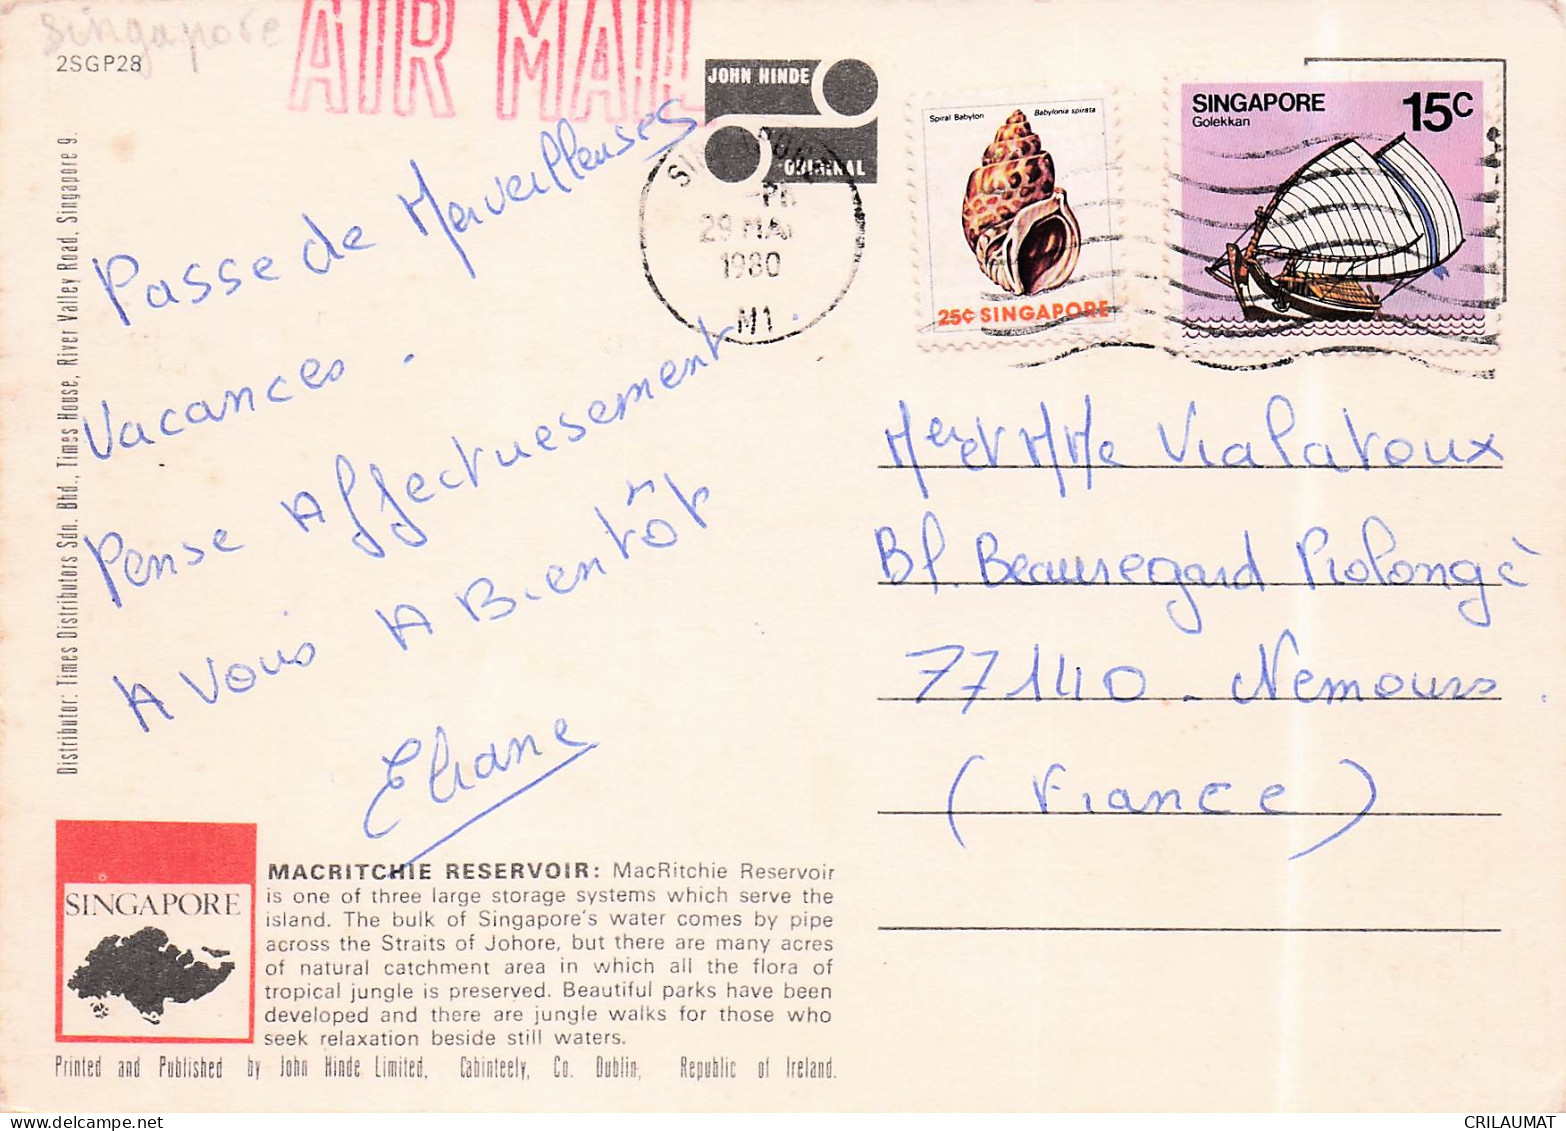 Singapore
2SGP28
AIR MAIL
JOHN HINDE
ORIGINAL
29 MAY
1980
M1
Spiral Babylon
Babylonia spirata
25¢ SINGAPORE
SINGAPORE
Golekkan
15C
Passe de Merveilleuses
Vacances.
Pense Affectuesement.
A Vous A Bientôt
Eliane
Mr et MMe Vialatoux
Bl. Beauregard Prolongé
77140 - Nemours
(France)
Distributor: Times Distributors Sdn. Bhd., Times House, River Valley Road, Singapore 9.
SINGAPORE
MACRITCHIE RESERVOIR: MacRitchie Reservoir
is one of three large storage systems which serve the
island. The bulk of Singapore's water comes by pipe
across the Straits of Johore, but there are many acres
of natural catchment area in which all the flora of
tropical jungle is preserved. Beautiful parks have been
developed and there are jungle walks for those who
seek relaxation beside still waters.
Printed and Published by John Hinde Limited, Cabinteely, Co. Dublin, Republic of Ireland.
CRILAUMAT